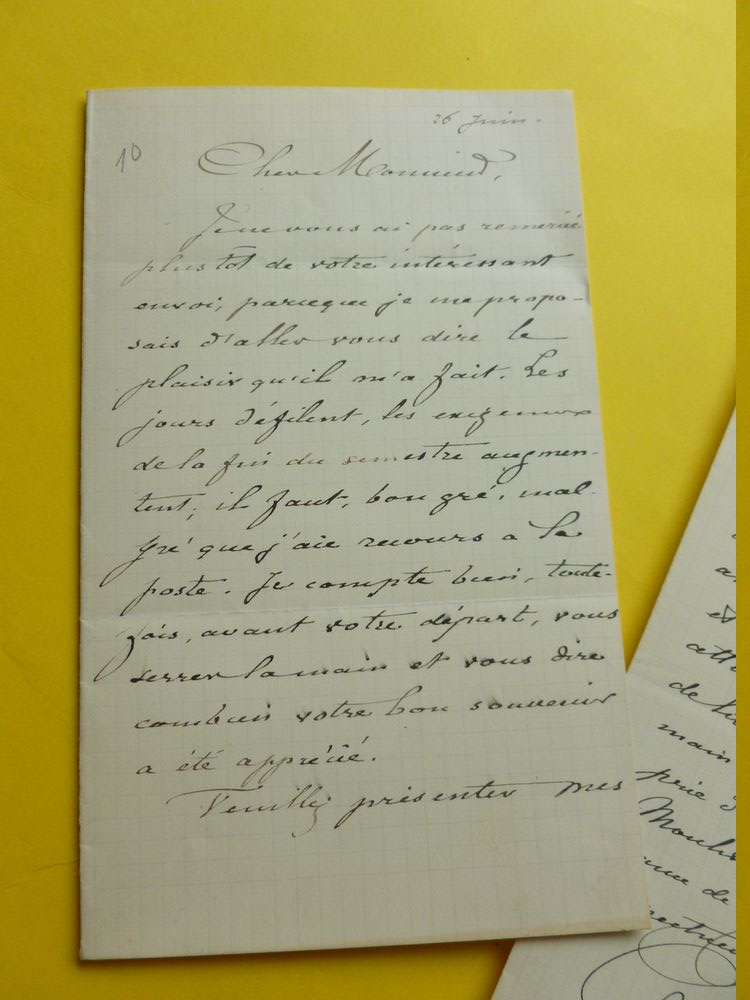 26 Juin.
10
Cher Monsieur,
Je ne vous ai pas remercié
plus tôt de votre intéressant
envoi, parceque je me propo-
sais d'aller vous dire le
plaisir qu'il m'a fait. Les
jours défilent, les exigences
de la fin du semestre augmen-
tent; il faut, bon gré, mal
gré que j'aie recours a la
poste. Je compte bien, toute-
fois, avant votre départ, vous
serrer la main et vous dire
combien votre bon souvenir
a été apprécié.
Veuillez présenter mes
a
et
de
main
prie
de